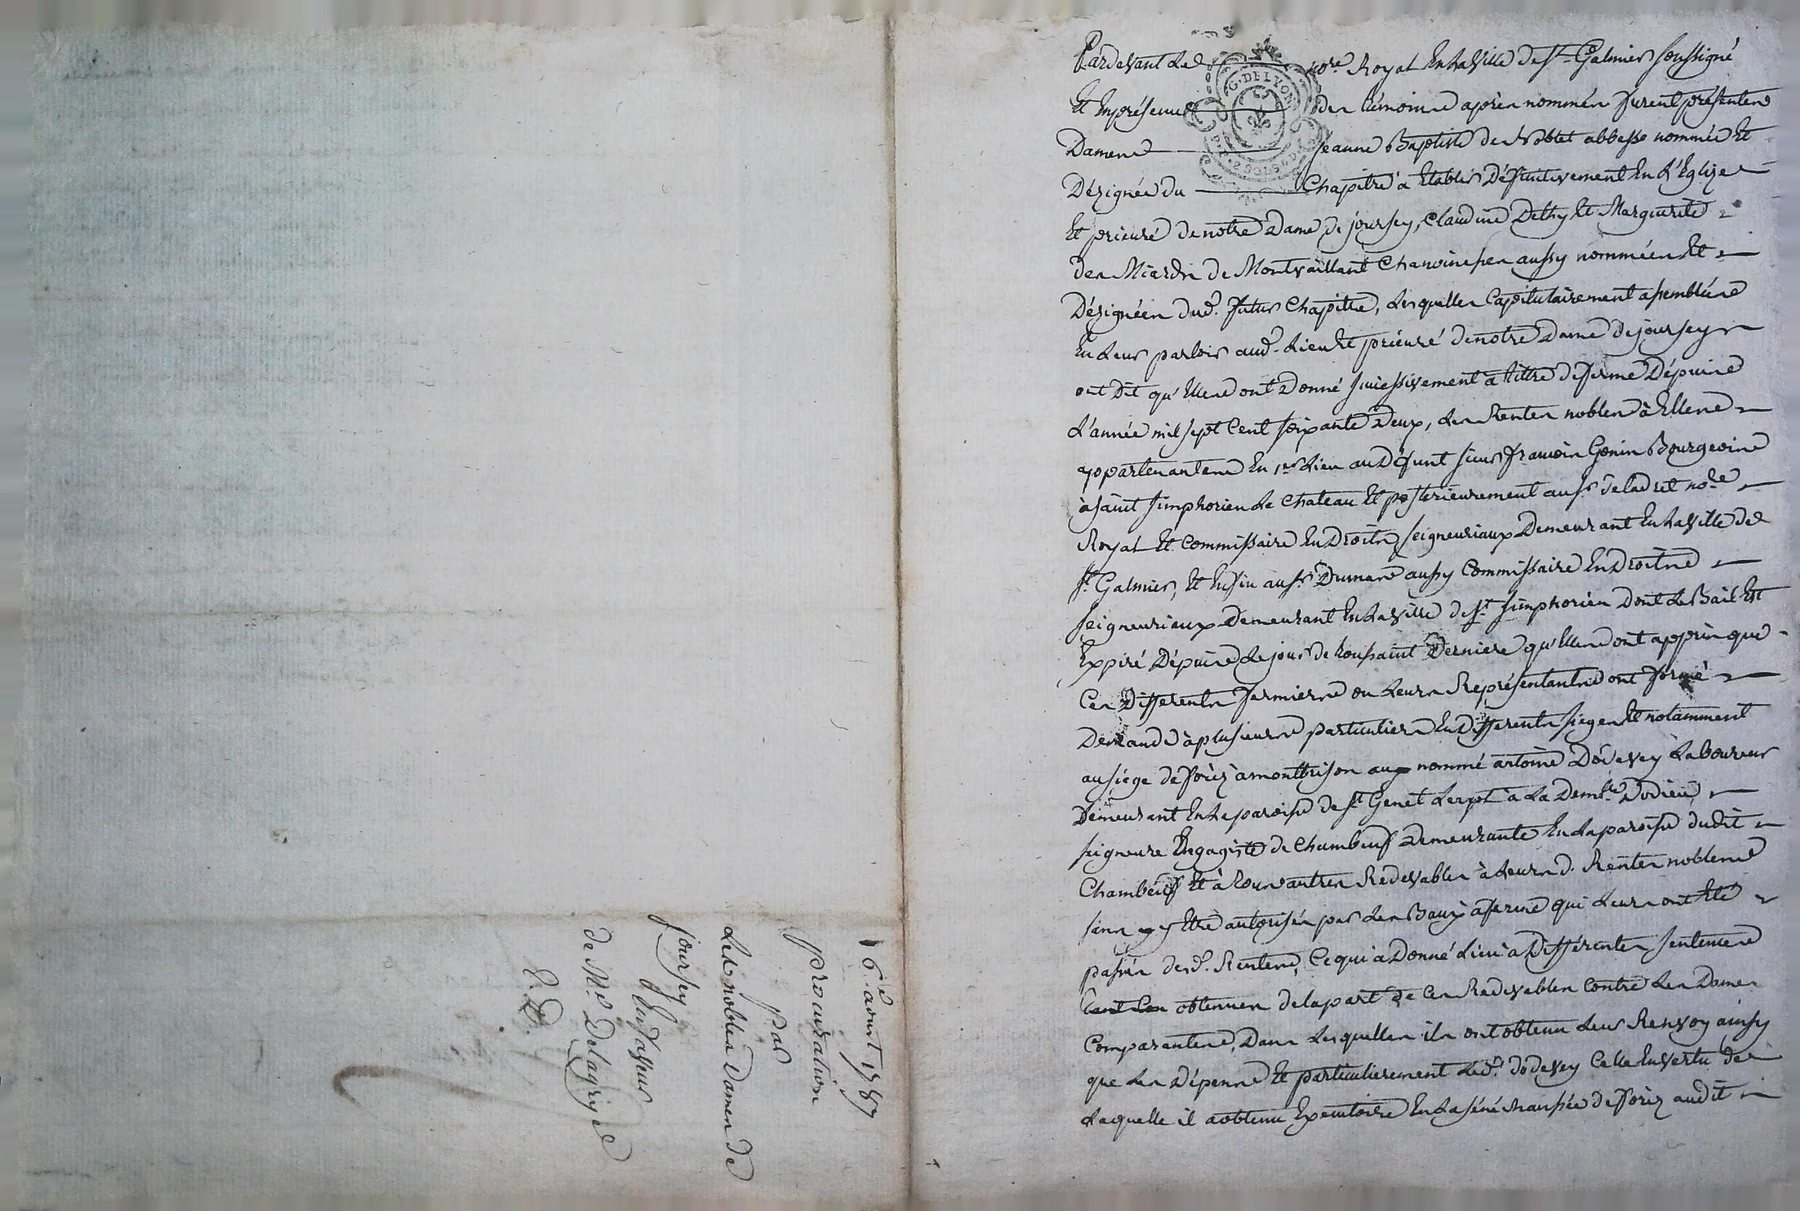 16.e aout 1787
procuration
par
Les nobles Dames de
jourcey
de Mr. Delagrye
E.D.
G. DE LYON
Pardevant Le no.re Royal En la Ville de St. Galmier soussigné
Et En présence des témoins après nommés furent présentes
Dames Jeanne Baptiste de Noblet abbesse nommée Et
Désignée du Chapitre a Etablir Définitivement En L'Eglize
Et prieuré de notre Dame de joursey, Claudine Delhy Et Marguerite
des Miards de Montvaillant Chanoinesses aussy nommées Et
Désignées dud. futur Chapitre, Lesquelles Capitulairement assemblées
En Leur parloir aud. Lieu Et prieuré de notre Dame de joursey
ont Dit qu'Elles ont Donné successivement a tittre de ferme Dépuis
L'année mil sept Cent soixante Deux, Les Rentes nobles à Elles
appartenantes En 1er Lieu au Défunt sieur françois Genin Bourgeois
à saint simphorien Le Chateau Et posterieurement au sr. no.re
Royal Et Commissaire En Droits seigneuriaux Demeurant En la Ville de
St. Galmier, Et Enfin au sr. Dumare aussy Commissaire En Droits
seigneuriaux Demeurant En la Ville de St. simphorien Dont Le Bail Est
Expiré Dépuis Le jour de toussaint Derniere qu'Elles ont appris que
Ces Differents fermiers ou Leurs Représentants ont formé
Demande à plusieurs particuliers En differents sieges Et notamment
au siége de forèz à montbrison au nommé antoine Dodevey Laboureur
Demeurant En La paroisse de St. Genet Lerpt à La Dem.lle Dodieu
seigneure Engagiste de Chambeuf Demeurante En la paroisse dudit
Chambeuf Et à tous autres Redevables à Leurs d. Rentes nobles
sans y Etre autorisés par Les Baux a ferme qui Leurs ont Eté
passés desd. Rentes, Ce qui a Donné Lieu à Différentes sentences
obtenues de la part de Ces Redevables Contre Les Dames
Comparantes, Dans Lesquelles ils ont obtenu Leur Renvoy ainsy
que Les Dépens Et particulierement Led. dodevey Celle En vertu de
Laquelle il a obtenu Exécutoire En la sénéchaussée de forèz audit